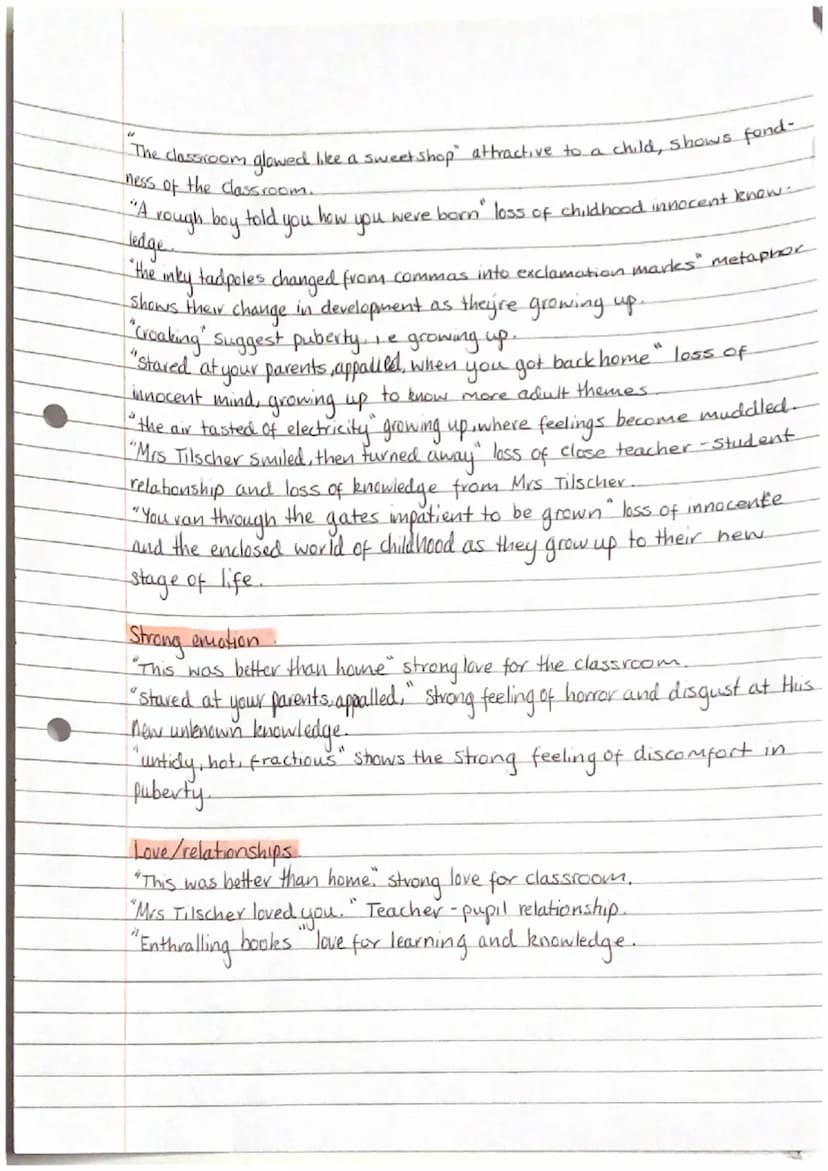 "The classroom glowed like a sweetshop" attractive to a child, shows fond-
ness of the classroom.
"A rough boy told you how you were born" loss of childhood innocent know-
ledge.
"the inky tadpoles changed from commas into exclamation marks" metaphor
shows their change in development as they're growing up.
"Croaking" suggest puberty. i.e growing up.
"Stared at your parents, appalled, when you got back home" loss of
innocent mind, growing up to know more adult themes.
"the air tasted of electricity" growing up, where feelings become muddled.
"Mrs Tilscher smiled, then turned away" loss of close teacher-student
relationship and loss of knowledge from Mrs Tilscher.
"You ran through the gates impatient to be grown" loss of innocence
and the enclosed world of childhood as they grow up to their new
stage of life.
Strong emotion.
"This was better than home" strong love for the classroom.
"Stared at your parents, appalled," strong feeling of horror and disgust at this
new unknown knowledge.
"untidy, hot, fractious" shows the strong feeling of discomfort in
puberty.
Love/relationships
"This was better than home." strong love for classroom.
"Mrs Tilscher loved you." Teacher-pupil relationship.
"Enthralling books" love for learning and knowledge.